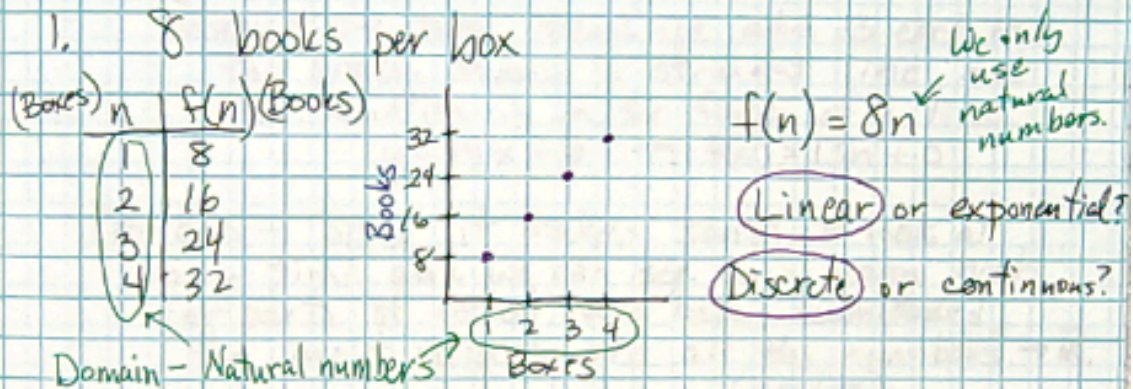 1. 8 books per box
(Boxes) n f(n) (Books)
1 8
2 16
3 24
4 32
Domain - Natural numbers
Books
32
24
16
8
1 2 3 4
Boxes
f(n) = 8n
We only
use
natural
numbers.
Linear or exponential?
Discrete or continuous?